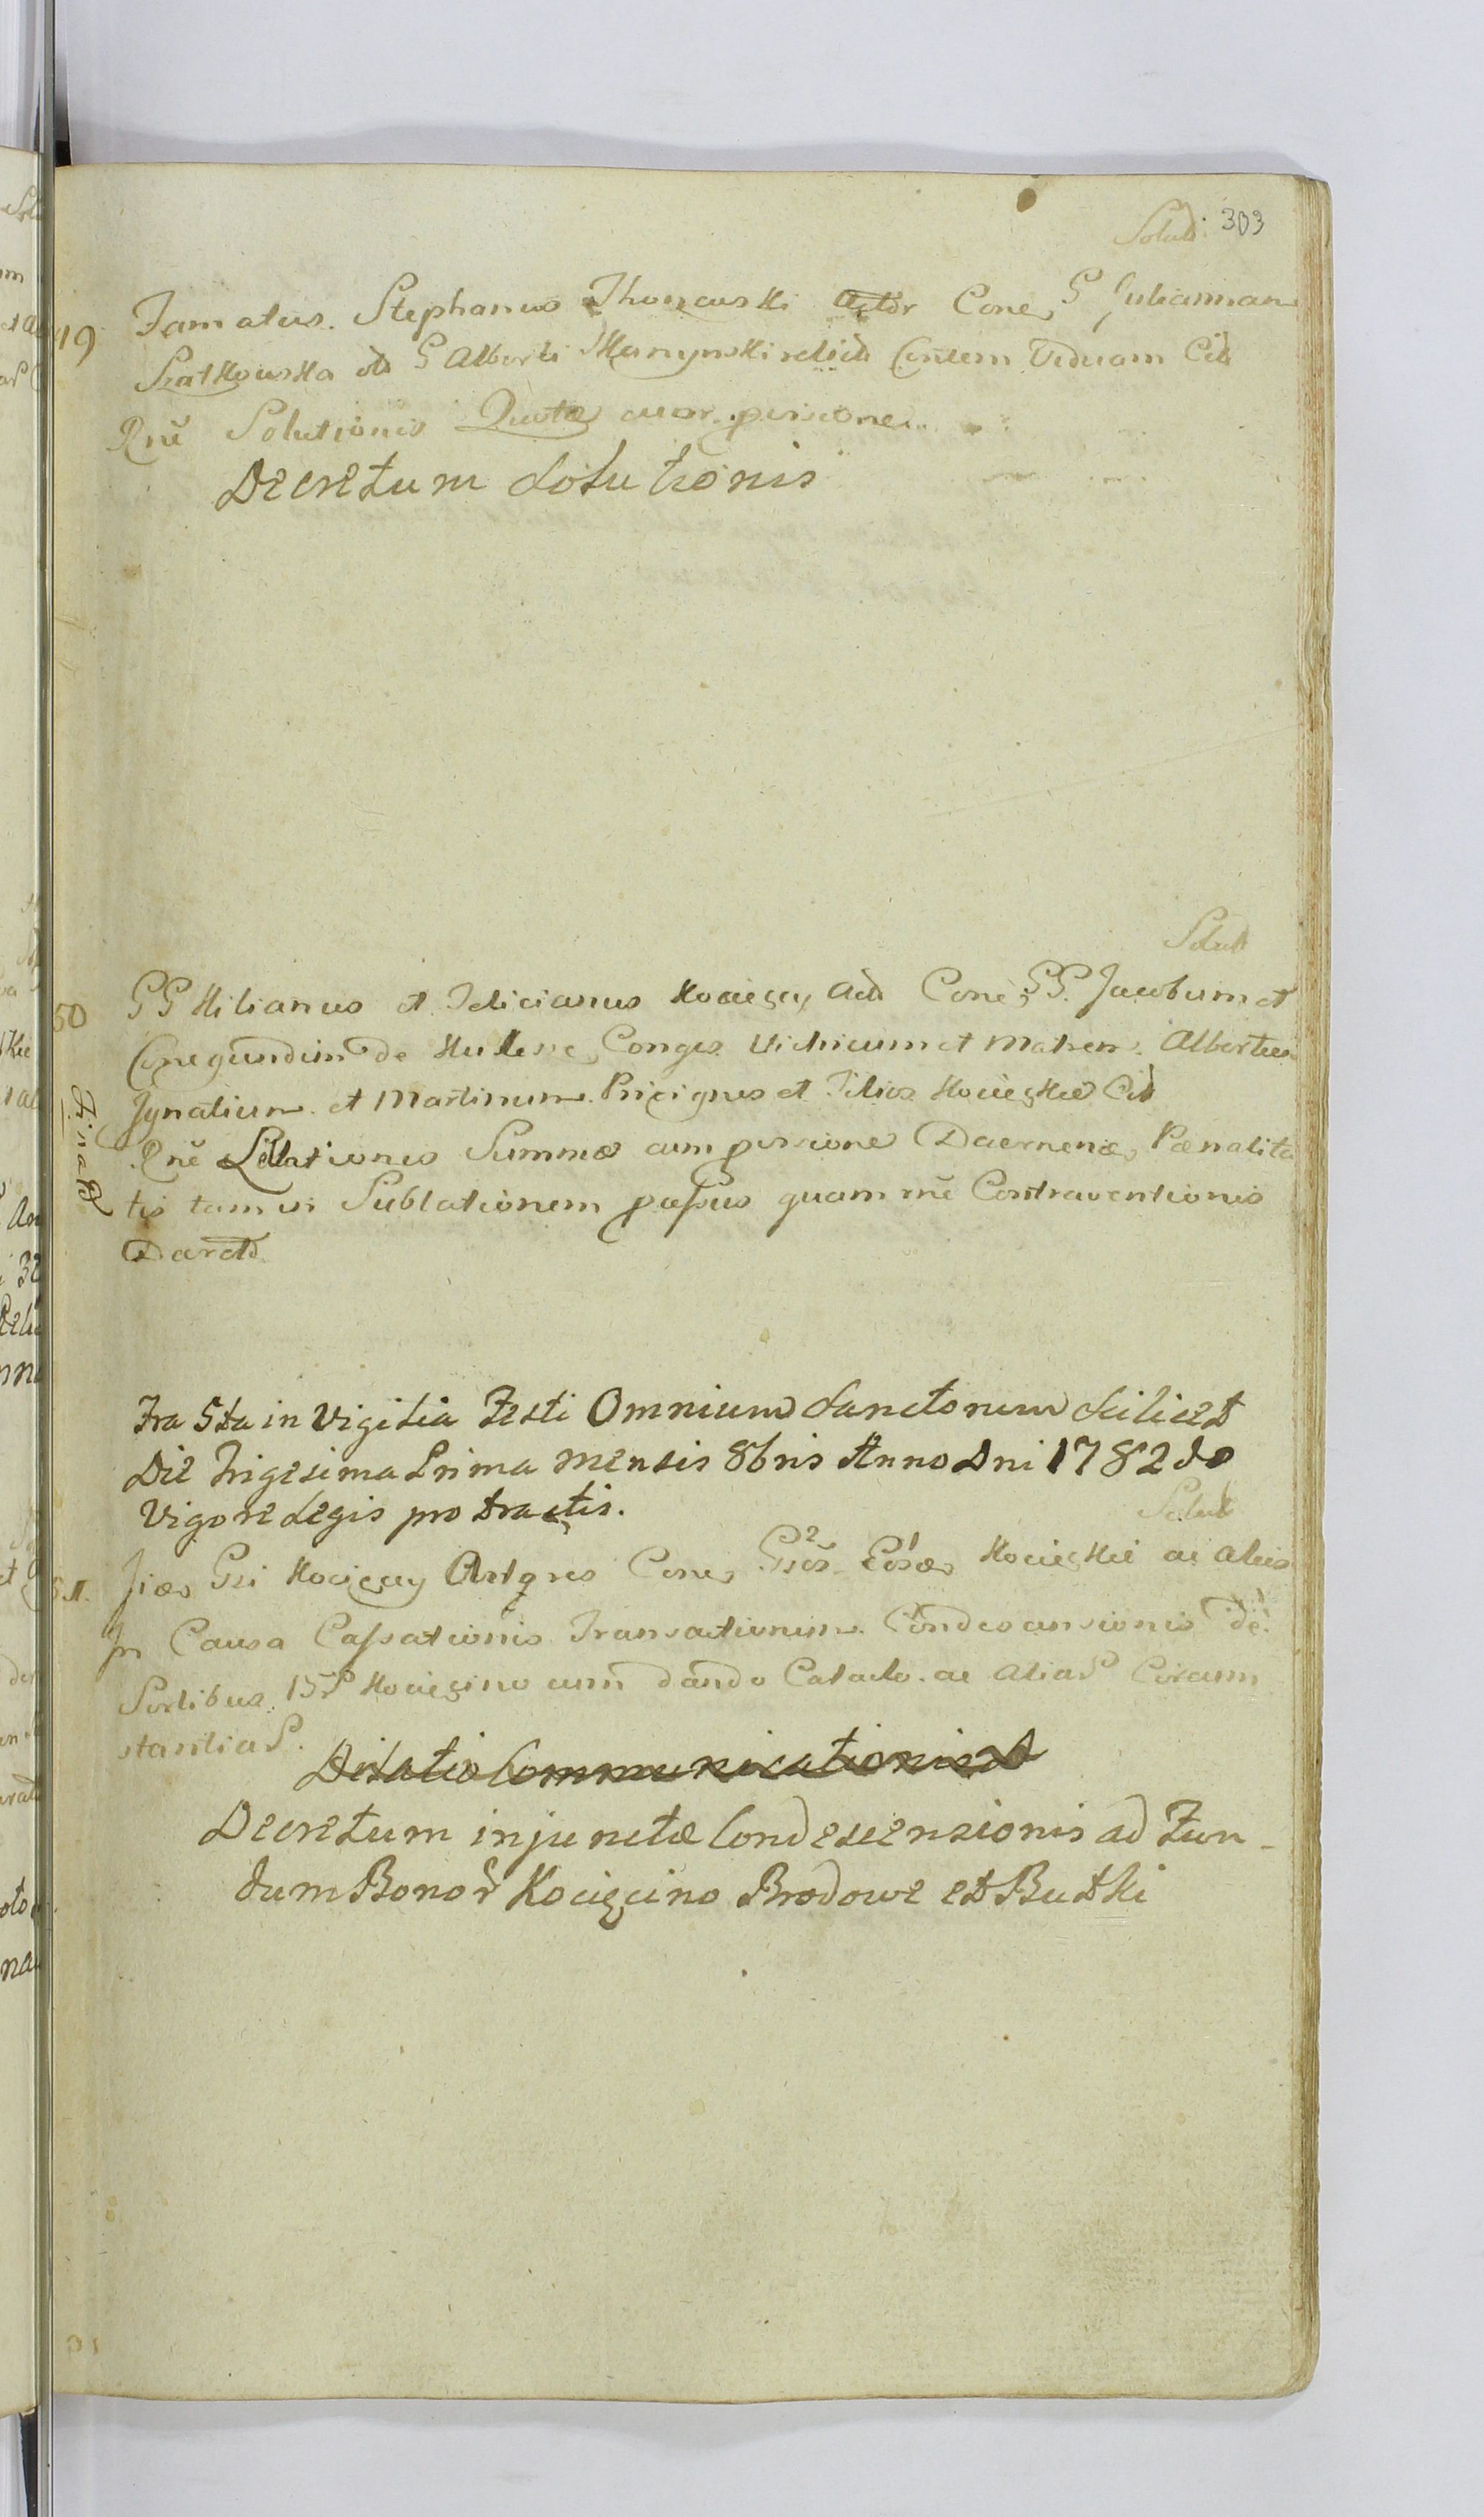 Solut: 303
19 Famatus. Stephanus Thonzewski Actor Cone, G Juliannam
Szatkowska ol G Alberti Skarzynski relict Contem Viduam Cit
Rne Solutionis Quotæ cuor. persione
Decretum Solutionis
Solut
50 GG Kilianus et Felicianus Kocięccy Act Cone, GG. Jacobum et
Cunegundim de Conges Vitricum et Matrem. Albertum
Ignatium et Martinum. Privignos et Filios Kocięckie Cit
Final
Rne Lellationis Summæ cum persione Pænalita
tis tam in Sublationem passus quam rne Contraventionis
Daratd
Fra 5ta in Vigilia Festi Omnium Sanctorum scilicet
Die Trigesima Prima mensis 8bris Anno Dni 1782do
Vigore Legis pro tractis.
Solut
51. Gsi Kocięccy Cone, Gsos 2 Eosd 1 Kocięckie ac Aliis
In Causa Cassationis Transactionum. Condescensionis de
Sortibus. Kocięcino cum dando Catado. ac Alias Circum
stantias.
Dilatio Communicationis
Decretum injunctæ Condescensionis ad Fun-
dum Bonor Kocięcino Brodowe et Butki